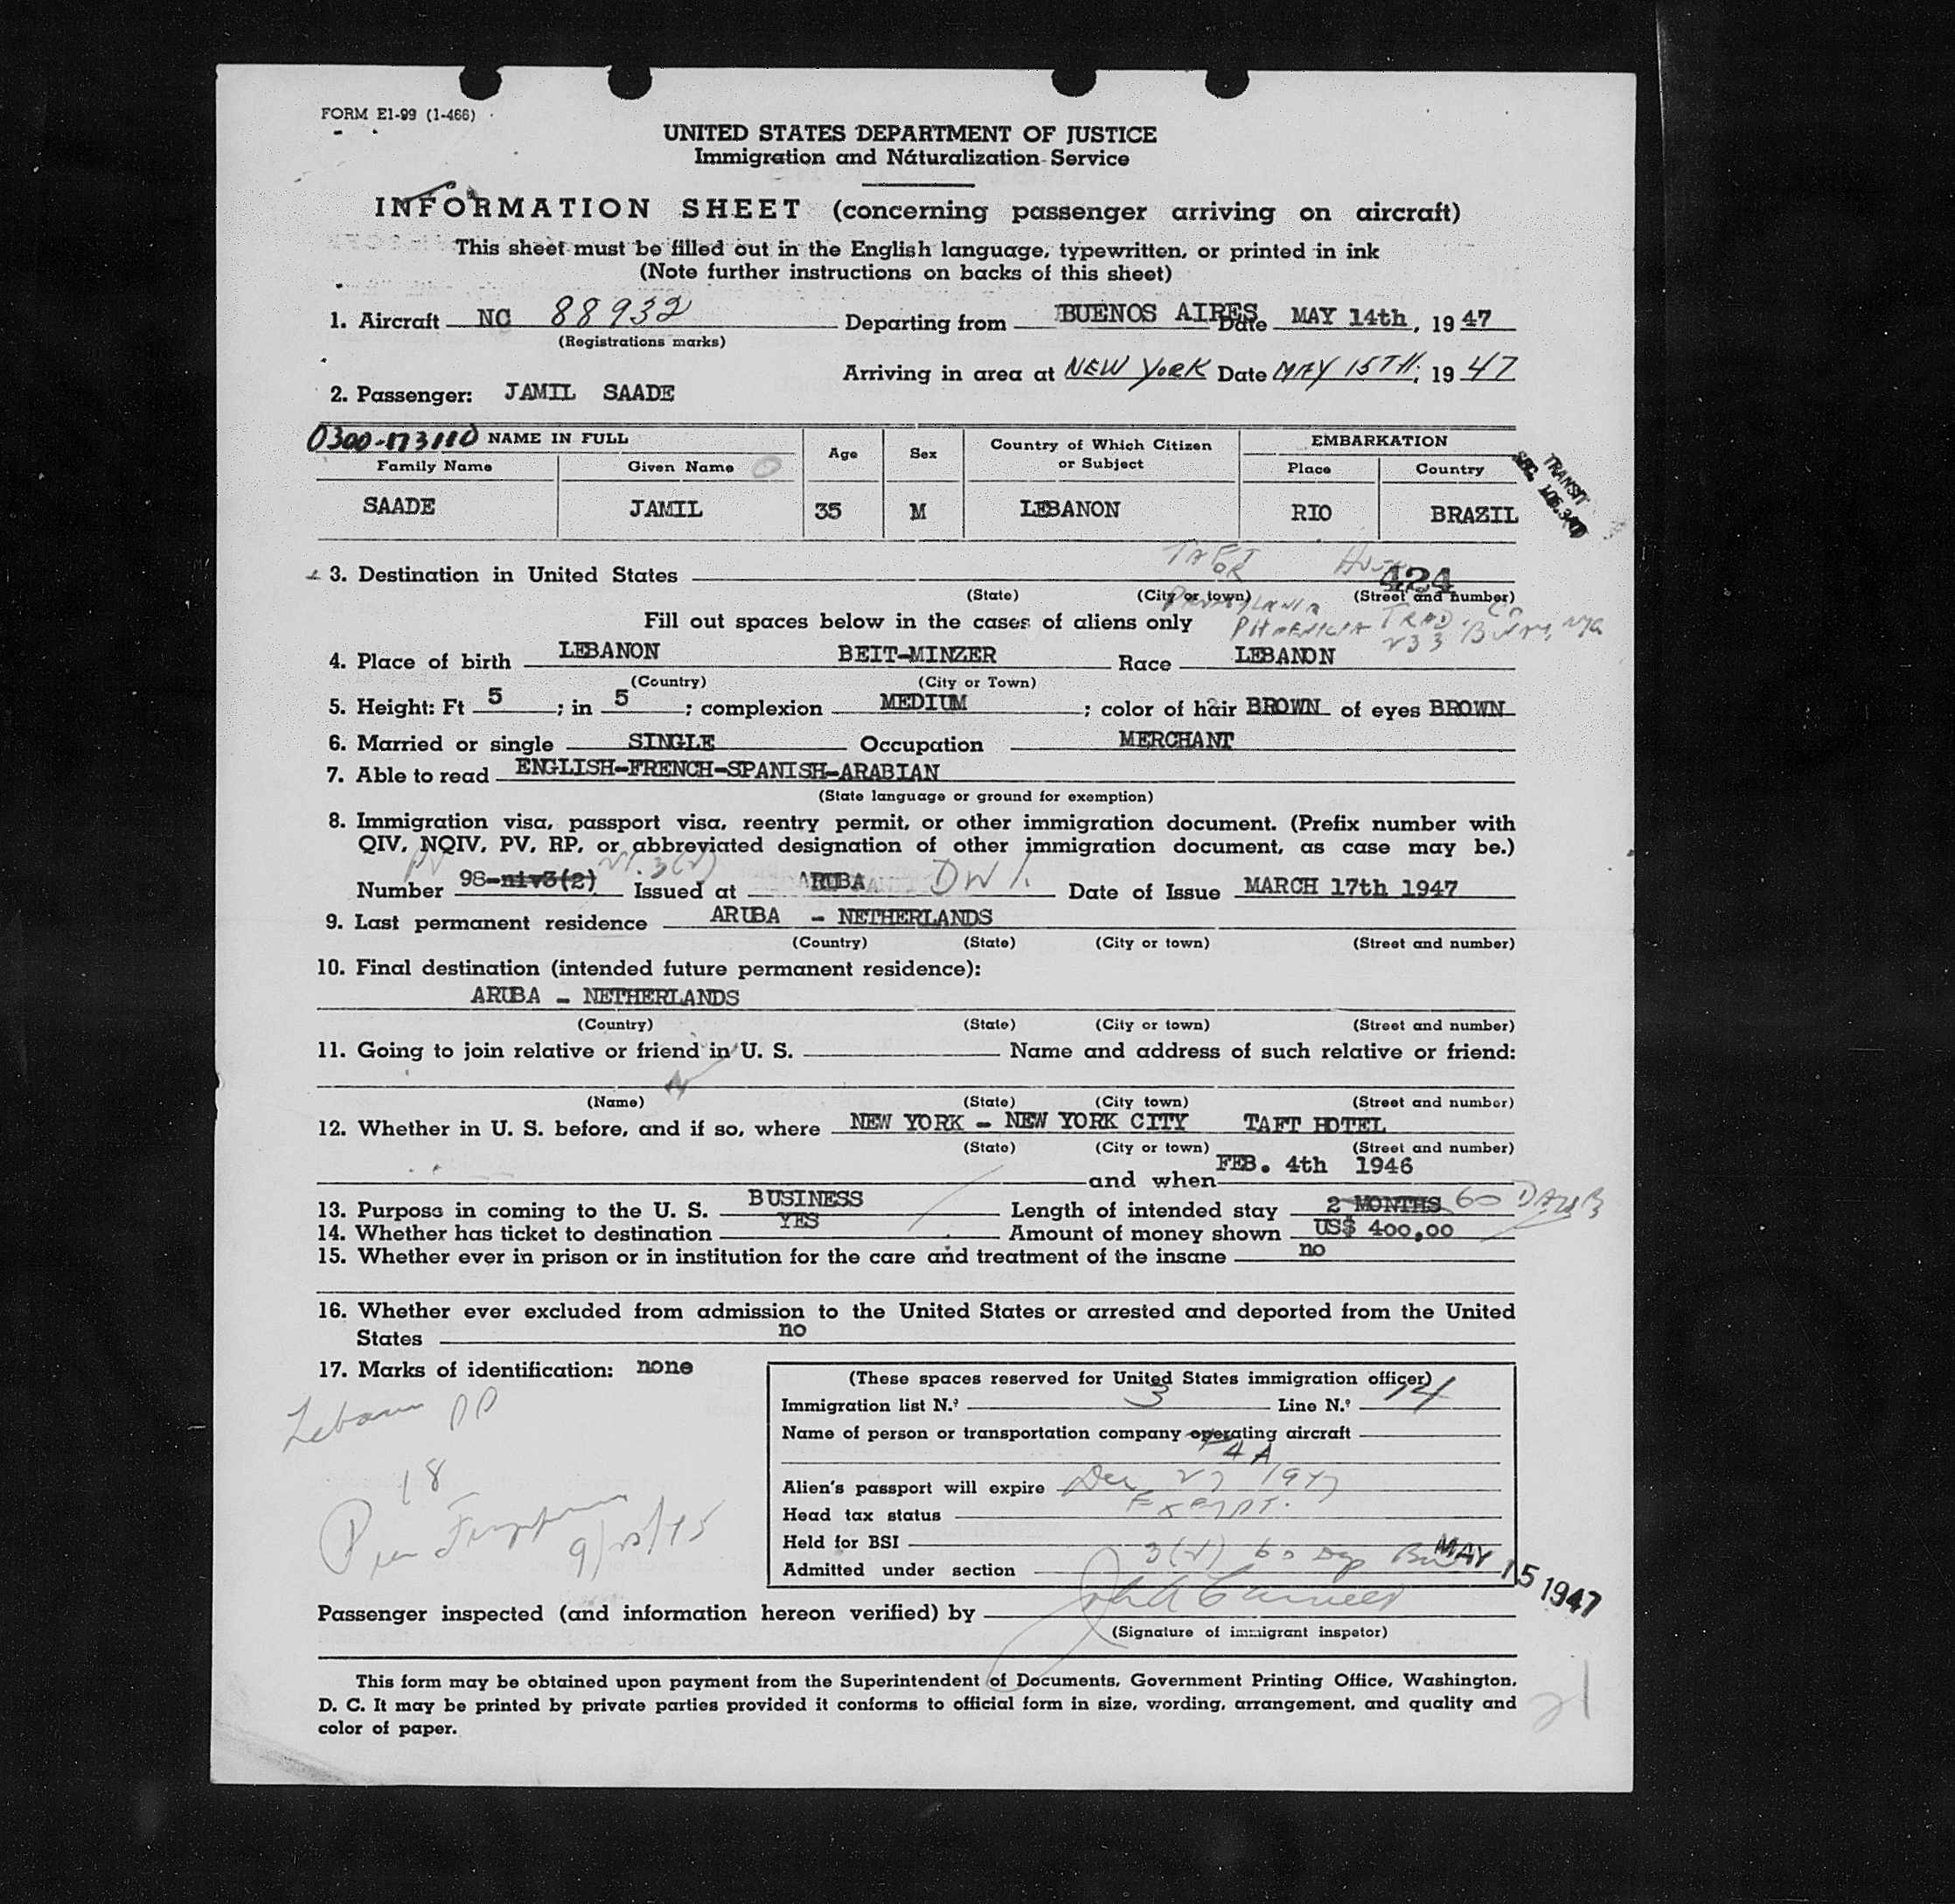 FORM E1-99 (1-466)
UNITED STATES DEPARTMENT OF JUSTICE
Immigration and Naturalization Service
INFORMATION SHEET (concerning passenger arriving on aircraft)
This sheet must be filled out in the English language, typewritten, or printed in ink
(Note further instructions on backs of this sheet)
1. Aircraft NC 88932 Departing from BUENOS AIRES Date MAY 14th, 19 47
(Registrations marks)
Arriving in area at NEW YORK Date MAY 15TH, 19 47
2. Passenger: JAMIL SAADE
0300-173110 NAME IN FULL Age Sex Country of Which Citizen or Subject EMBARKATION
Family Name Given Name Place Country
SAADE JAMIL 35 M LEBANON RIO BRAZIL
TRANSIT
SEC.
TAFT
OR
3. Destination in United States 424
(State) (City or town) (Street and number)
PENNSYLVANIA
Fill out spaces below in the cases of aliens only PHOENICIA TRAD. Co
233 NYC
4. Place of birth LEBANON BEIT-MINZER Race LEBANON
(Country) (City or Town)
5. Height: Ft 5 ; in 5 ; complexion MEDIUM ; color of hair BROWN of eyes BROWN
6. Married or single SINGLE Occupation MERCHANT
7. Able to read ENGLISH-FRENCH-SPANISH-ARABIAN
(State language or ground for exemption)
8. Immigration visa, passport visa, reentry permit, or other immigration document. (Prefix number with
QIV, NQIV, PV, RP, or abbreviated designation of other immigration document, as case may be.)
PV 3(2)
Number 98-niv3(2) Issued at ARUBA DWI. Date of Issue MARCH 17th 1947
9. Last permanent residence ARUBA - NETHERLANDS
(Country) (State) (City or town) (Street and number)
10. Final destination (intended future permanent residence):
ARUBA - NETHERLANDS
(Country) (State) (City or town) (Street and number)
11. Going to join relative or friend in U. S. Name and address of such relative or friend:
(Name) (State) (City town) (Street and number)
12. Whether in U. S. before, and if so, where NEW YORK - NEW YORK CITY TAFT HOTEL
(State) (City or town) (Street and number)
and when FEB. 4th 1946
13. Purpose in coming to the U. S. BUSINESS Length of intended stay 2 MONTHS 60 DAYS
14. Whether has ticket to destination YES Amount of money shown US$ 400,00
15. Whether ever in prison or in institution for the care and treatment of the insane no
16. Whether ever excluded from admission to the United States or arrested and deported from the United
States no
17. Marks of identification: none
(These spaces reserved for United States immigration officer)
Immigration list N.º 3 Line N.º 14
Name of person or transportation company operating aircraft
Alien's passport will expire Dec 27 1947
Head tax status Exempt.
Held for BSI
Admitted under section 3(2) 60 Days
MAY 15 1947
Lebanon PP
18
Passenger inspected (and information hereon verified) by
(Signature of immigrant inspetor)
This form may be obtained upon payment from the Superintendent of Documents, Government Printing Office, Washington,
D. C. It may be printed by private parties provided it conforms to official form in size, wording, arrangement, and quality and
color of paper.
21